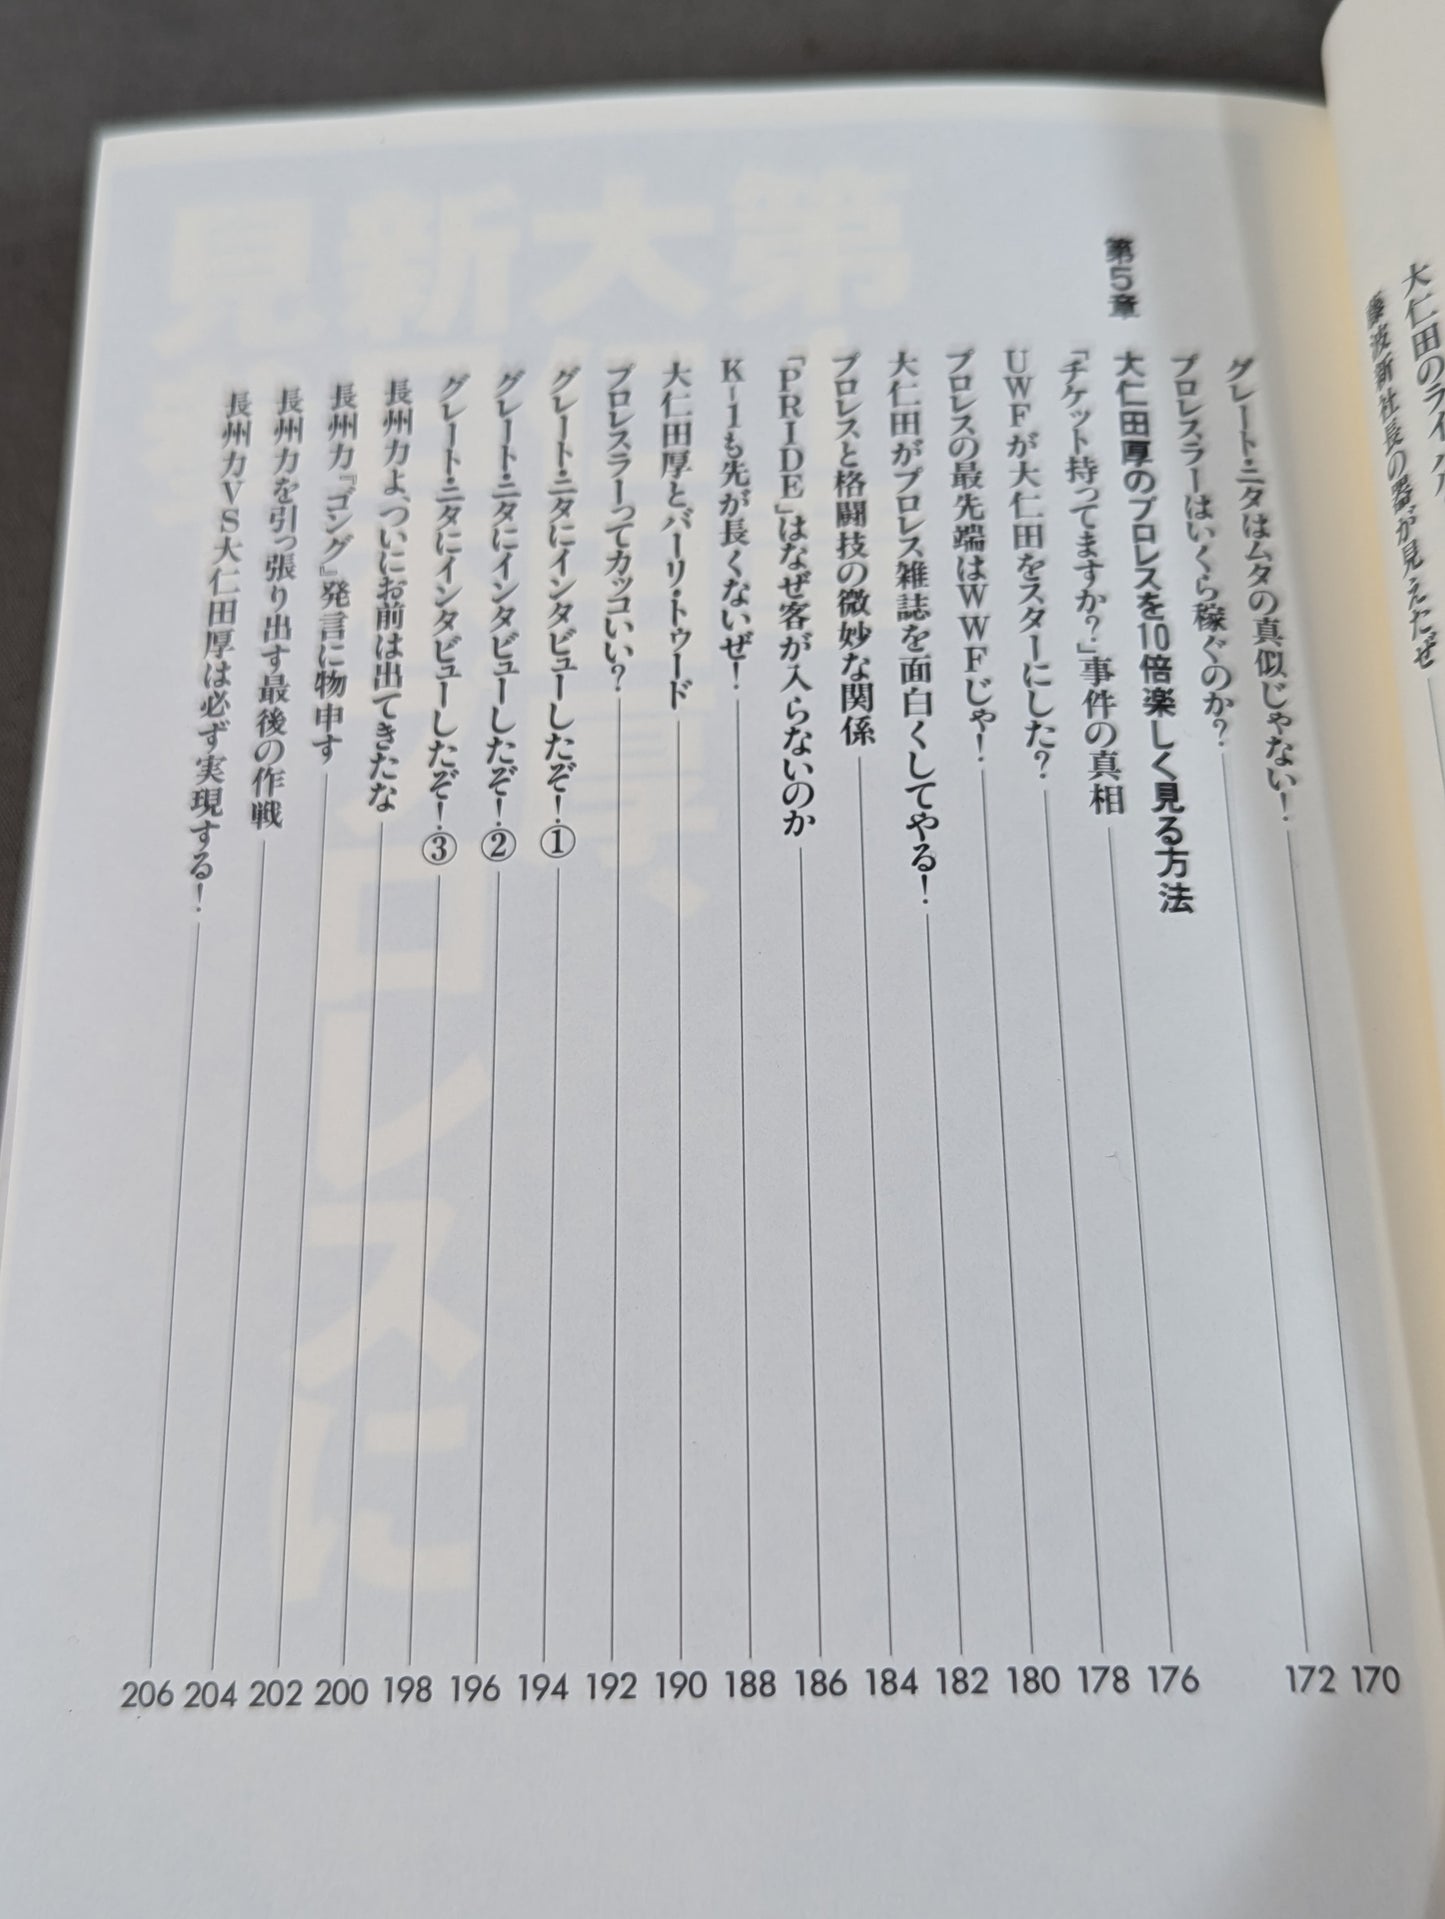 大仁田のライバル
藤波新社長の器が見えたぜ
グレート・ニタはムタの真似じゃない！ 170
プロレスラーはいくら稼ぐのか？ 172
第5章 大仁田厚のプロレスを10倍楽しく見る方法
「チケット持ってますか？」事件の真相 176
UWFが大仁田をスターにした？ 178
プロレスの最先端はWWFじゃ！ 180
大仁田がプロレス雑誌を面白くしてやる！ 182
プロレスと格闘技の微妙な関係 184
「PRIDE」はなぜ客が入らないのか 186
K-1も先が長くないぜ！ 188
大仁田厚とバーリ・トゥード 190
プロレスラーってカッコいい？ 192
グレート・ニタにインタビューしたぞ！① 194
グレート・ニタにインタビューしたぞ！② 196
グレート・ニタにインタビューしたぞ！③ 198
長州力よ、ついにお前は出てきたな 200
長州力『ゴング』発言に物申す 202
長州力を引っ張り出す最後の作戦 204
長州力VS大仁田厚は必ず実現する！ 206